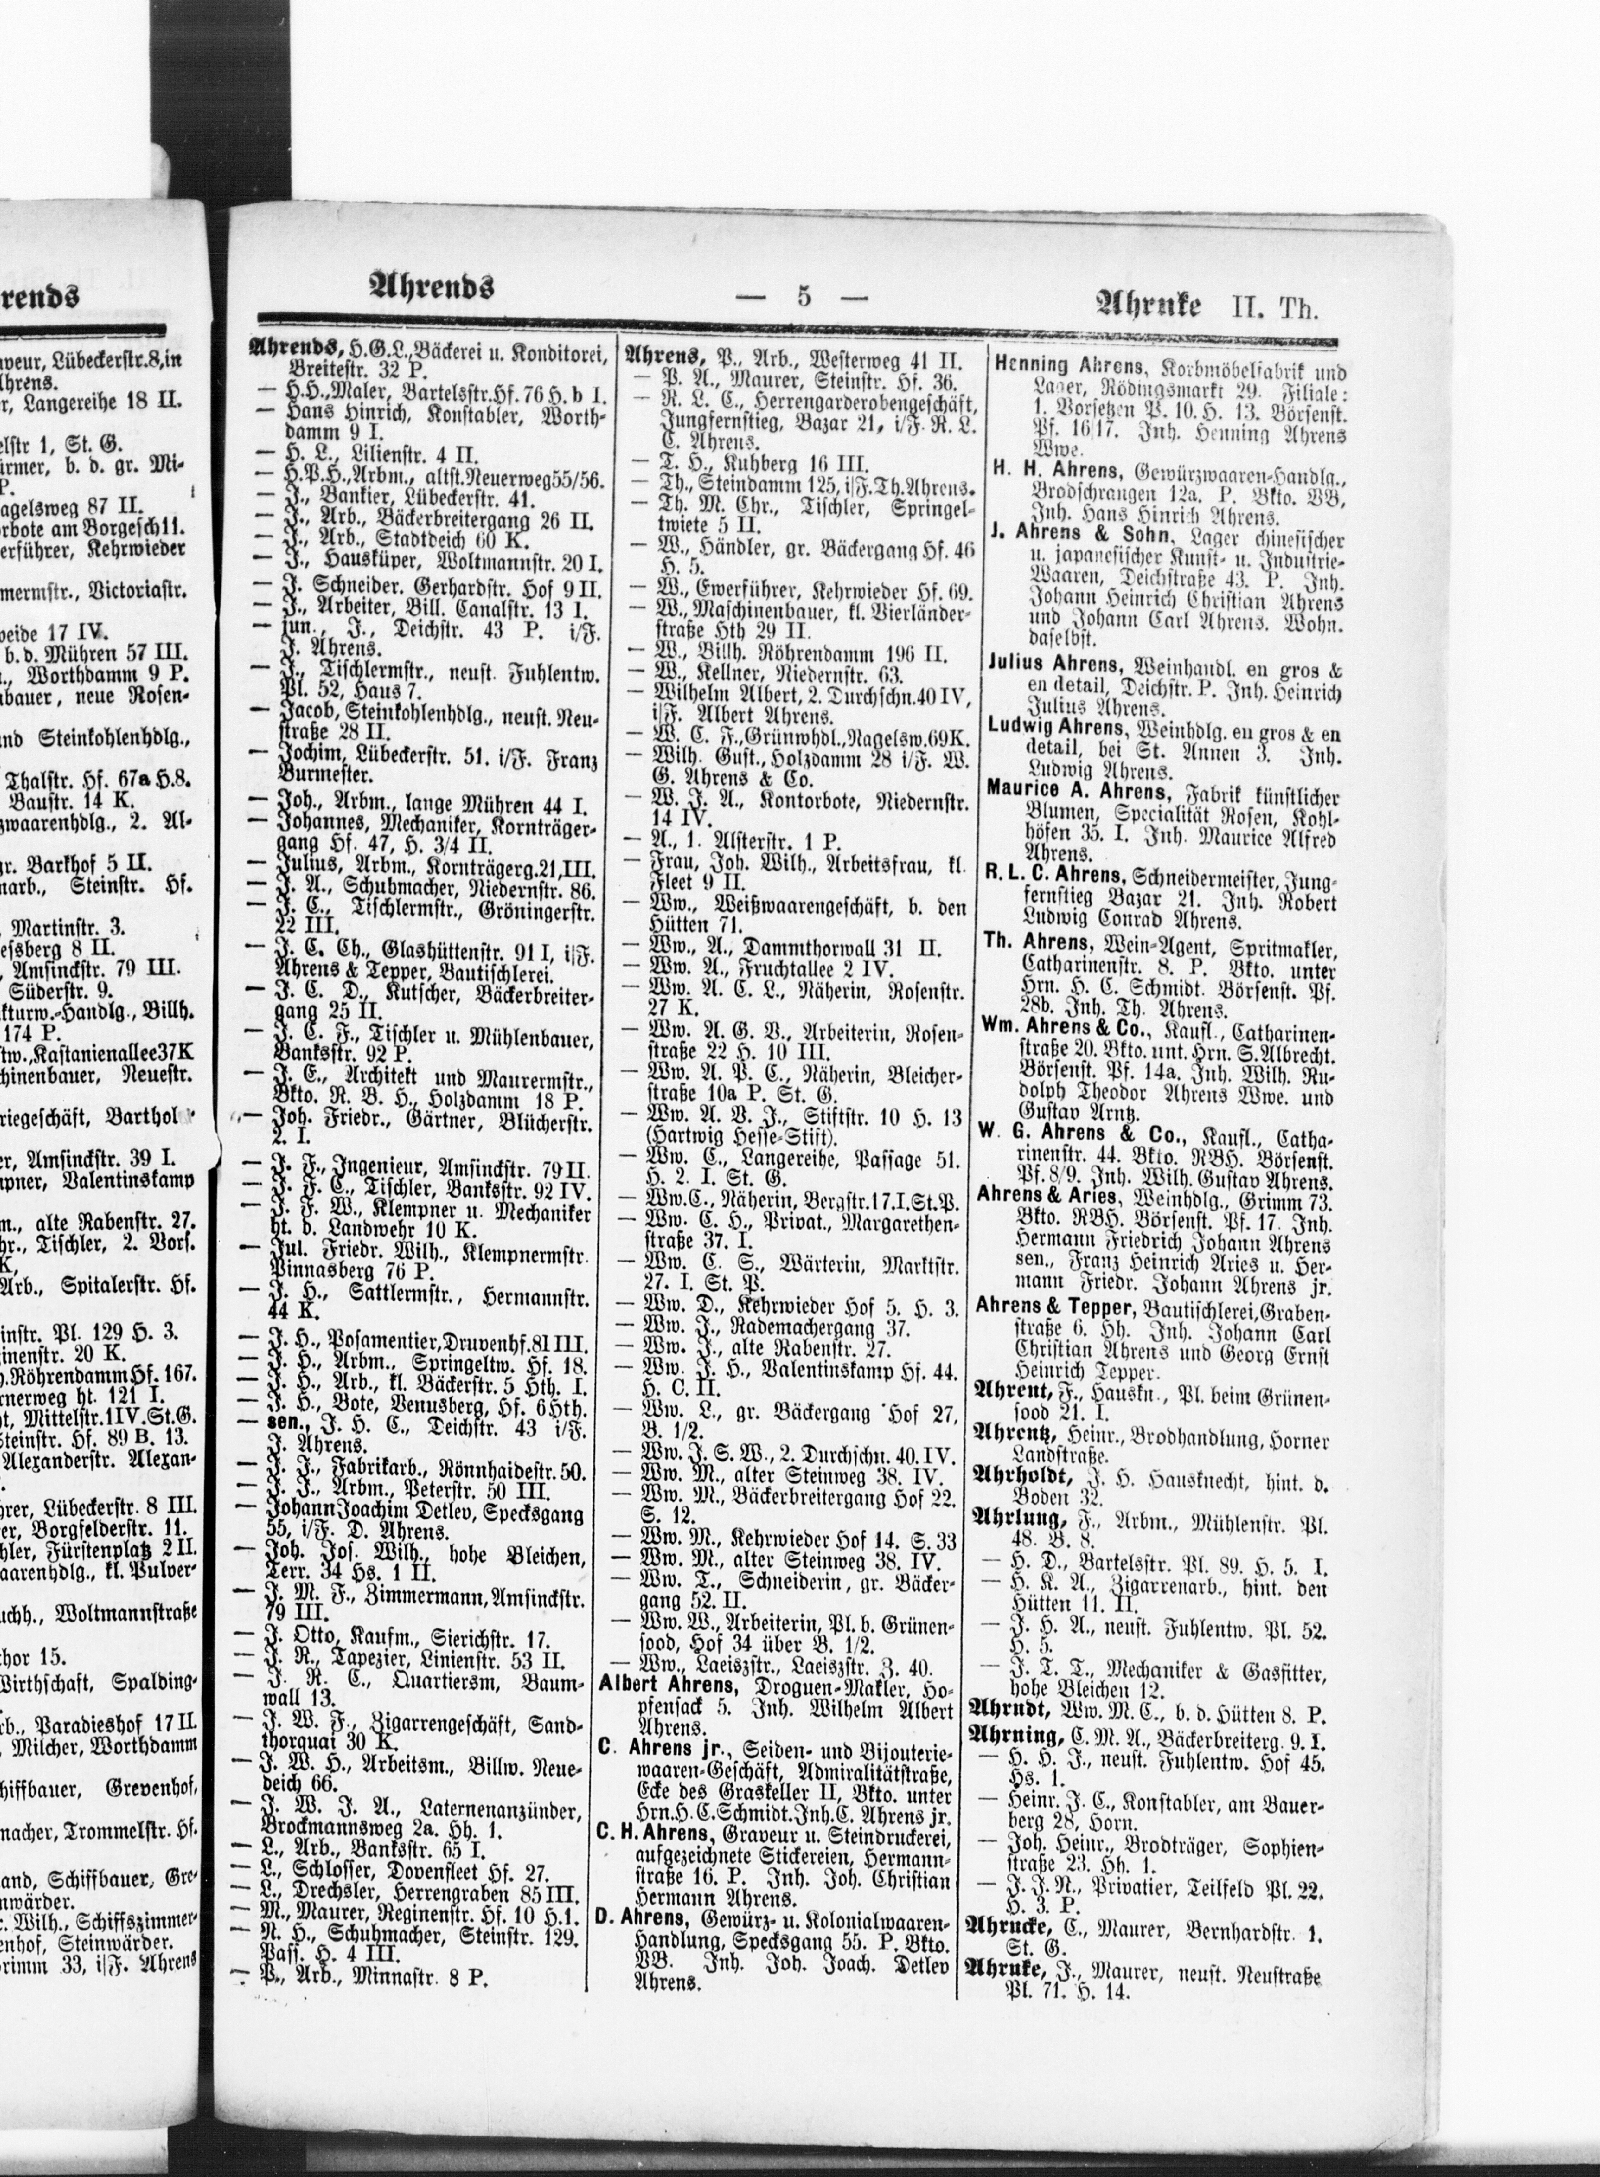 rends
aveur, Lübeckerstr.8,in
Ahrens.
r, Langereihe 18 II.
elstr 1, St. G.
ürmer, b. d. gr. Mi-
P.
agelsweg 87 II.
orbote am Borgesch11.
erführer, Kehrwieder
mermstr., Victoriastr.
weide 17 IV.
b. d. Mühren 57 III.
., Worthdamm 9 P.
nbauer, neue Rosen-
und Steinkohlenhdlg.,
Thalstr. Hf. 67a H.8.
Baustr. 14 K.
zwaarenhdlg., 2. Al-
gr. Barkhof 5 II.
narb., Steinstr. Hf.
, Martinstr. 3.
essberg 8 II.
, Amsinckstr. 79 III.
Süderstr. 9.
kturw.-Handlg., Billh.
174 P.
tw., Kastanienallee37K
chinenbauer, Neuestr.
riegeschäft, Barthol
er, Amsinckstr. 39 I.
mpner, Valentinskamp
m., alte Rabenstr. 27.
hr., Tischler, 2. Vors.
K,
Arb., Spitalerstr. Hf.
instr. Pl. 129 H. 3.
inenstr. 20 K.
h.Röhrendamm Hf. 167.
rnerweg ht. 121 I.
ht, Mittelstr.1IV.St.G.
Steinstr. Hf. 89 B. 13.
Alexanderstr. Alexan-
hrer, Lübeckerstr. 8 III.
er, Borgfelderstr. 11.
hler, Fürstenplatz 2 II.
aarenhdlg., kl. Pulver-
uchh., Woltmannstraße
thor 15.
Wirthschaft, Spalding-
rb., Paradieshof 17 II.
, Milcher, Worthdamm
hiffbauer, Grevenhof,
macher, Trommelstr. Hf.
and, Schiffbauer, Gre-
nwärder.
c. Wilh., Schiffszimmer-
enhof, Steinwärder.
rimm 33, i/F. Ahrens
Ahrends — 5 — Ahrnke II. Th.
Ahrends, H.G.L., Bäckerei u. Konditorei,
Breitestr. 32 P.
— H.H., Maler, Bartelsstr.Hf. 76 H. b I.
— Hans Hinrich, Konstabler, Worth-
damm 9 I.
— H. L., Lilienstr. 4 II.
— H.P.H., Arbm., altst.Neuerweg55/56.
— J., Bankier, Lübeckerstr. 41.
— J., Arb., Bäckerbreitergang 26 II.
— J., Arb., Stadtdeich 60 K.
— J., Hausküper, Woltmannstr. 20 I.
— J. Schneider. Gerhardstr. Hof 9 II.
— J., Arbeiter, Bill. Canalstr. 13 I.
— jun., J., Deichstr. 43 P. i/F.
J. Ahrens.
— J., Tischlermstr., neust. Fuhlentw.
Pl. 52, Haus 7.
— Jacob, Steinkohlenhdlg., neust. Neu-
straße 28 II.
— Jochim, Lübeckerstr. 51. i/F. Franz
Burmester.
— Joh., Arbm., lange Mühren 44 I.
— Johannes, Mechaniker, Kornträger-
gang Hf. 47, H. 3/4 II.
— Julius, Arbm., Kornträgerg.21,III.
— J. A., Schuhmacher, Niedernstr. 86.
— J. C., Tischlermstr., Gröningerstr.
22 III.
— J. C. Ch., Glashüttenstr. 91 I, i/F.
Ahrens & Tepper, Bautischlerei.
— J. C. D., Kutscher, Bäckerbreiter-
gang 25 II.
— J. C. F., Tischler u. Mühlenbauer,
Banksstr. 92 P.
— J. E., Architekt und Maurermstr.,
Bkto. R. B. H., Holzdamm 18 P.
— Joh. Friedr., Gärtner, Blücherstr.
2. I.
— J. F., Ingenieur, Amsinckstr. 79 II.
— J. F. C., Tischler, Banksstr. 92 IV.
— J. F. W., Klempner u. Mechaniker
ht. d. Landwehr 10 K.
— Jul. Friedr. Wilh., Klempnermstr.
Pinnasberg 76 P.
— J. H., Sattlermstr., Hermannstr.
44 K.
— J. H., Posamentier, Druvenhf.81 III.
— J. H., Arbm., Springeltw. Hf. 18.
— J. H., Arb., kl. Bäckerstr. 5 Hth. I.
— J. H., Bote, Venusberg, Hf. 6 Hth.
— sen., J. H. C., Deichstr. 43 i/F.
J. Ahrens.
— J. J., Fabrikarb., Rönnhaidestr. 50.
— J. J., Arbm., Peterstr. 50 III.
— Johann Joachim Detlev, Specksgang
55, i/F. D. Ahrens.
— Joh. Jos. Wilh., hohe Bleichen,
Terr. 34 Hs. 1 II.
— J. M. F., Zimmermann, Amsinckstr.
79 III.
— J. Otto, Kaufm., Sierichstr. 17.
— J. R., Tapezier, Linienstr. 53 II.
— J. R. C., Quartiersm, Baum-
wall 13.
— J. W. F., Zigarrengeschäft, Sand-
thorquai 30 K.
— J. W. H., Arbeitsm., Billw. Neue-
deich 66.
— J. W. J. A., Laternenanzünder,
Brockmannsweg 2a. Hh. 1.
— L., Arb., Banksstr. 65 I.
— L., Schlosser, Dovenfleet Hf. 27.
— L., Drechsler, Herrengraben 85 III.
— M., Maurer, Reginenstr. Hf. 10 H.1.
— N. H., Schuhmacher, Steinstr. 129.
Pass. H. 4 III.
— P., Arb., Minnastr. 8 P.
Ahrens, P., Arb., Westerweg 41 II.
— P. A., Maurer, Steinstr. Hf. 36.
— R. L. C., Herrengarderobengeschäft,
Jungfernstieg, Bazar 21, i/F. R. L.
C. Ahrens.
— T. H., Kuhberg 16 III.
— Th., Steindamm 125, i/F.Th.Ahrens.
— Th. M. Chr., Tischler, Springel-
twiete 5 II.
— W., Händler, gr. Bäckergang Hf. 46
H. 5.
— W., Ewerführer, Kehrwieder Hf. 69.
— W., Maschinenbauer, kl. Vierländer-
straße Hth 29 II.
— W., Billh. Röhrendamm 196 II.
— W., Kellner, Niedernstr. 63.
— Wilhelm Albert, 2. Durchschn.40 IV,
i/F. Albert Ahrens.
— W. C. F., Grünwhdl., Nagelsw.69K.
— Wilh. Gust., Holzdamm 28 i/F. W.
G. Ahrens & Co.
— W. J. A., Kontorbote, Niedernstr.
14 IV.
— A., 1. Alsterstr. 1 P.
— Frau, Joh. Wilh., Arbeitsfrau, kl.
Fleet 9 II.
— Ww., Weißwaarengeschäft, b. den
Hütten 71.
— Ww., A., Dammthorwall 31 II.
— Ww. A., Fruchtallee 2 IV.
— Ww. A. C. L., Näherin, Rosenstr.
27 K.
— Ww. A. G. V., Arbeiterin, Rosen-
straße 22 H. 10 III.
— Ww. A. P. C., Näherin, Bleicher-
straße 10a P. St. G.
— Ww. A. V. J., Stiftstr. 10 H. 13
(Hartwig Hesse-Stift).
— Ww. C., Langereihe, Passage 51.
H. 2. I. St. G.
— Ww. C., Näherin, Bergstr.17.I.St.P.
— Ww. C. H., Privat., Margarethen-
straße 37. I.
— Ww. C. S., Wärterin, Marktstr.
27. I. St. P.
— Ww. D., Kehrwieder Hof 5. H. 3.
— Ww. J., Rademachergang 37.
— Ww. J., alte Rabenstr. 27.
— Ww. J. H., Valentinskamp Hf. 44.
H. C. II.
— Ww. L., gr. Bäckergang Hof 27,
B. 1/2.
— Ww. J. S. W., 2. Durchschn. 40. IV.
— Ww. M., alter Steinweg 38. IV.
— Ww. M., Bäckerbreitergang Hof 22.
S. 12.
— Ww. M., Kehrwieder Hof 14. S. 33
— Ww. M., alter Steinweg 38. IV.
— Ww. T., Schneiderin, gr. Bäcker-
gang 52. II.
— Ww. W., Arbeiterin, Pl. b. Grünen-
sood, Hof 34 über B. 1/2.
— Ww., Laeiszstr., Laeiszstr. Z. 40.
Albert Ahrens, Droguen-Makler, Ho-
pfensack 5. Inh. Wilhelm Albert
Ahrens.
C. Ahrens jr., Seiden- und Bijouterie-
waaren-Geschäft, Admiralitätstraße,
Ecke des Graskeller II, Bkto. unter
Hrn.H.C.Schmidt.Inh.C. Ahrens jr.
C. H. Ahrens, Graveur u. Steindruckerei,
aufgezeichnete Stickereien, Hermann-
straße 16. P. Inh. Joh. Christian
Hermann Ahrens.
D. Ahrens, Gewürz- u. Kolonialwaaren-
Handlung, Specksgang 55. P. Bkto.
VB. Inh. Joh. Joach. Detlev
Ahrens.
Henning Ahrens, Korbmöbelfabrik und
Lager, Rödingsmarkt 29. Filiale:
1. Vorsetzen P. 10. H. 13. Börsenst.
Pf. 16/17. Inh. Henning Ahrens
Wwe.
H. H. Ahrens, Gewürzwaaren-Handlg.,
Brodschrangen 12a. P. Bkto. VB,
Inh. Hans Hinrich Ahrens.
J. Ahrens & Sohn, Lager chinesischer
u. japanesischer Kunst- u. Industrie-
Waaren, Deichstraße 43. P. Inh.
Johann Heinrich Christian Ahrens
und Johann Carl Ahrens. Wohn.
daselbst.
Julius Ahrens, Weinhandl. en gros &
en detail, Deichstr. P. Inh. Heinrich
Julius Ahrens.
Ludwig Ahrens, Weinhdlg. en gros & en
detail, bei St. Annen 3. Inh.
Ludwig Ahrens.
Maurice A. Ahrens, Fabrik künstlicher
Blumen, Specialität Rosen, Kohl-
höfen 35. I. Inh. Maurice Alfred
Ahrens.
R. L. C. Ahrens, Schneidermeister, Jung-
fernstieg Bazar 21. Inh. Robert
Ludwig Conrad Ahrens.
Th. Ahrens, Wein-Agent, Spritmakler,
Catharinenstr. 8. P. Bkto. unter
Hrn. H. C. Schmidt. Börsenst. Pf.
28b. Inh. Th. Ahrens.
Wm. Ahrens & Co., Kaufl., Catharinen-
straße 20. Bkto. unt. Hrn. S. Albrecht.
Börsenst. Pf. 14a. Inh. Wilh. Ru-
dolph Theodor Ahrens Wwe. und
Gustav Arntz.
W. G. Ahrens & Co., Kaufl., Catha-
rinenstr. 44. Bkto. RBH. Börsenst.
Pf. 8/9. Inh. Wilh. Gustav Ahrens.
Ahrens & Aries, Weinhdlg., Grimm 73.
Bkto. RBH. Börsenst. Pf. 17. Inh.
Hermann Friedrich Johann Ahrens
sen., Franz Heinrich Aries u. Her-
mann Friedr. Johann Ahrens jr.
Ahrens & Tepper, Bautischlerei, Graben-
straße 6. Hh. Inh. Johann Carl
Christian Ahrens und Georg Ernst
Heinrich Tepper.
Ahrent, F., Hauskn., Pl. beim Grünen-
sood 21. I.
Ahrentz, Heinr., Brodhandlung, Horner
Landstraße.
Ahrholdt, J. H. Hausknecht, hint. d.
Boden 32.
Ahrlung, F., Arbm., Mühlenstr. Pl.
48. B. 8.
— H. D., Bartelsstr. Pl. 89. H. 5. I.
— H. K. A., Zigarrenarb., hint. den
Hütten 11. II.
— J. H. A., neust. Fuhlentw. Pl. 52.
H. 5.
— J. T. T., Mechaniker & Gasfitter,
hohe Bleichen 12.
Ahrndt, Ww. M. C., b. d. Hütten 8. P.
Ahrning, C. M. A., Bäckerbreiterg. 9. I.
— H. H. J., neust. Fuhlentw. Hof 45.
Hs. 1.
— Heinr. J. C., Konstabler, am Bauer-
berg 28, Horn.
— Joh. Heinr., Brodträger, Sophien-
straße 23. Hh. 1.
— J. J. N., Privatier, Teilfeld Pl. 22.
H. 3. P.
Ahrncke, C., Maurer, Bernhardstr. 1.
St. G.
Ahrnke, J., Maurer, neust. Neustraße
Pl. 71. H. 14.